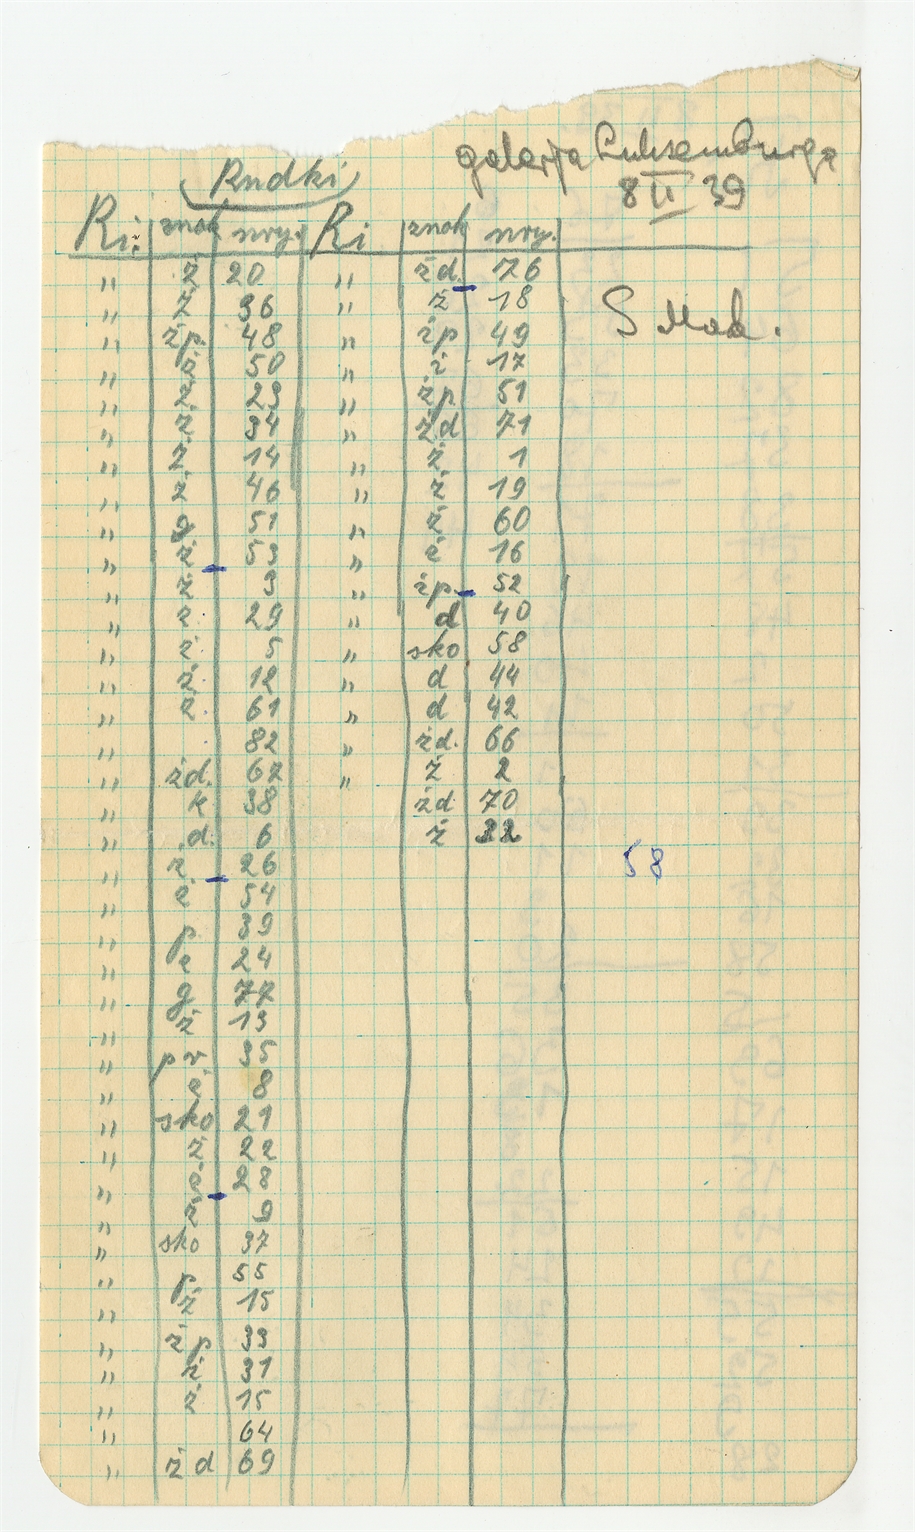 Rudki
galerja Luksemburga
8 II 39
Ri: znak nry. Ri znak nry.
" ż 20 " żd. 76
" ż 36 " ż 18
" żp. 48 " żp 49
" ż 50 " ż 17
" ż 23 " żp 51
" ż 34 " ż.d 71
" ż 14 " ż 1
" ż 46 " ż 19
" g 51 " ż 60
" ż 53 " ż 16
" ż 3 " żp. 52
" ż 29 " d 40
" ż 5 " sko 58
" ż 12 " d 44
" ż 61 " d 42
" 82 " żd. 66
" żd. 67 " ż 2
" k 38 żd 70
" d. 6 ż 32
" ż. 26
" ż 54
" p 39
" ż 24
" g 77
" ż 13
" pr 35
" ż 8
" sko 21
" ż 22
" ż 28
" ż 9
" sko 37
" p 55
" ż 15
" żp 33
" ż 31
" ż 15
" 64
" żd 69
S Mak.
58